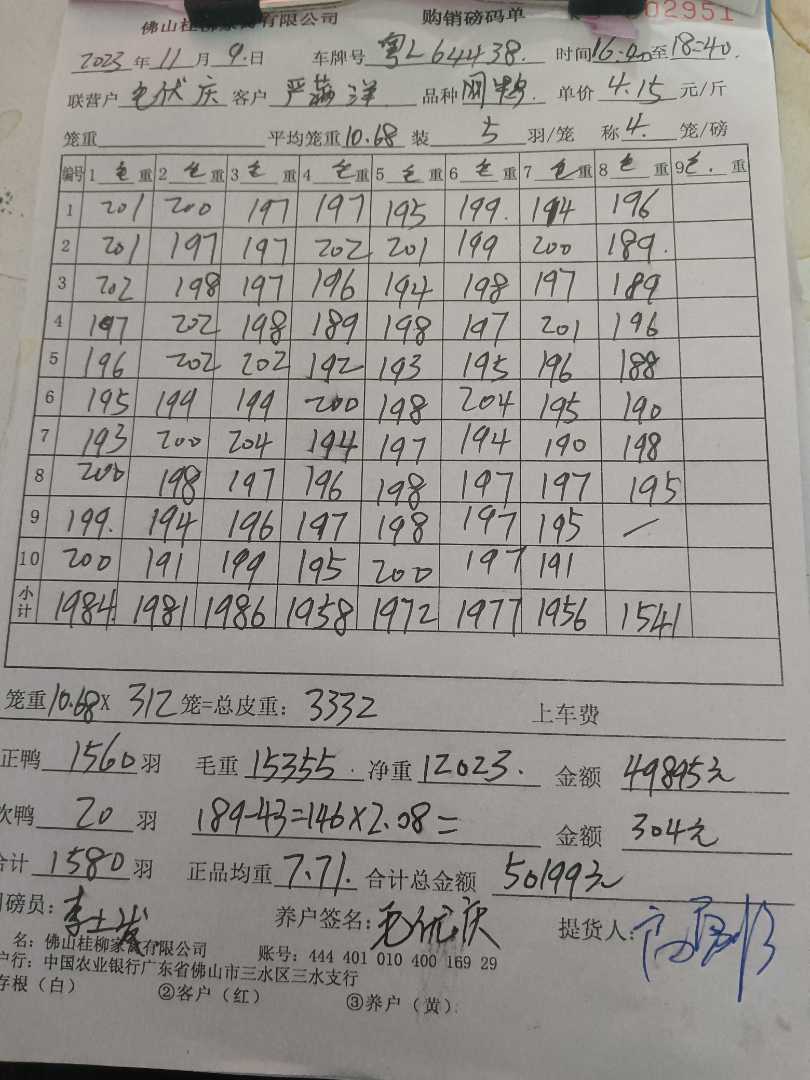 佛山桂柳家禽有限公司 购销磅码单 02951
2023年11月9日 车牌号 粤L64438. 时间16:00至18:40.
联营户 毛伏庆 客户 品种 单价 4.15 元/斤
笼重 平均笼重10.68 装 5 羽/笼 称4. 笼/磅
编号 1 毛 重 2 毛 重 3 毛 重 4 毛 重 5 毛 重 6 毛 重 7 毛 重 8 毛 重 9 毛. 重
1 201 200 197 197 195 199. 194 196
2 201 197 197 202 201 199 200 189.
3 202 198 197 196 194 198 197 189
4 197 202 198 189 198 197 201 196
5 196 202 202 192 193 195 196 188
6 195 199 199 200 198 204 195 190
7 193 200 204 194 197 194 190 198
8 200 198 197 196 198 197 197 195
9 199. 194 196 197 198 197 195 —
10 200 191 199 195 200 197 191
小计 1984 1981 1986 1958 1972 1977 1956 1541
笼重10.68X 312 笼=总皮重: 3332 上车费
正鸭 1560 羽 毛重 15355. 净重 12023. 金额 49895元
次鸭 20 羽 189-43=146×2.08= 金额 304元
合计 1580 羽 正品均重 7.71. 合计总金额 50199元
司磅员: 养户签名: 毛伏庆 提货人:
名: 佛山桂柳家禽有限公司 账号: 444 401 010 400 169 29
户行: 中国农业银行广东省佛山市三水区三水支行
存根(白) ②客户(红) ③养户(黄)